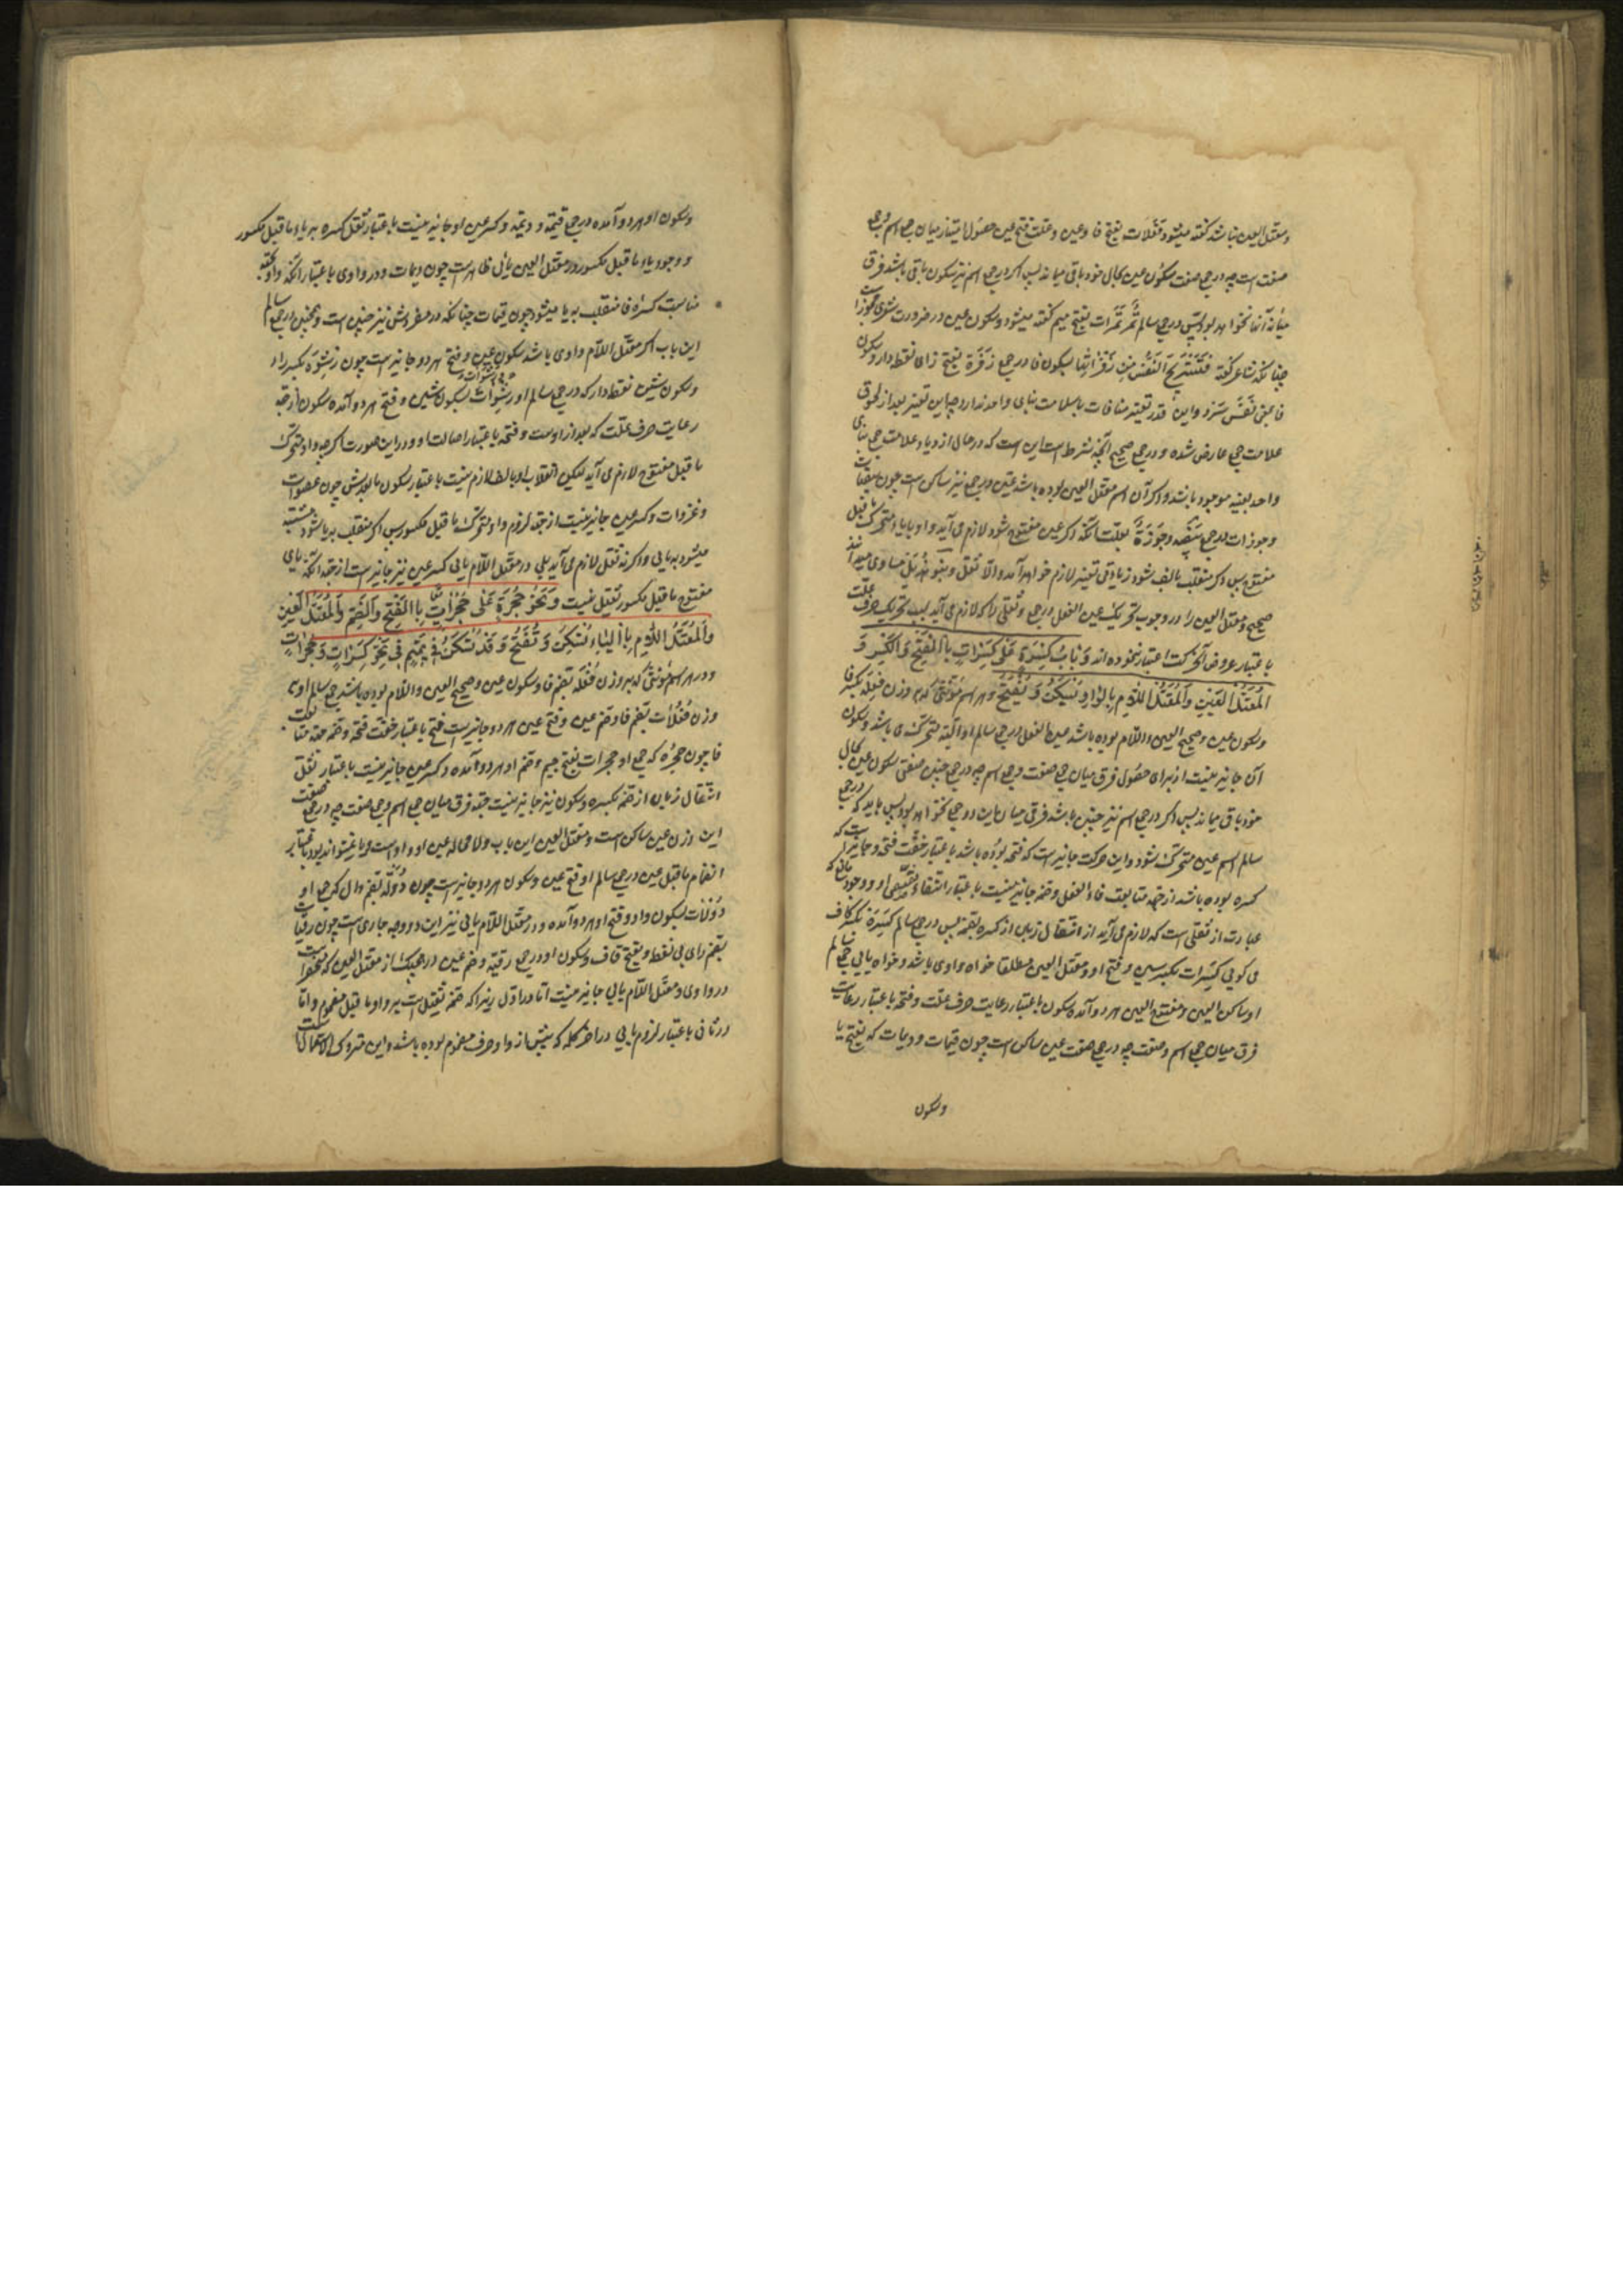 ومعتل العین نباشد گفته میشود فَعَلات بفتح فا وعین وعلت فتح عین حصول امتیاز میان جمع اسم وجمع
صفت است چه در جمع صفت سکون عین بحال خود باقی میماند پس اگر در جمع اسم نیز سکون باقی باشد فرق
میانه آنها نخواهد بود پس در جمع سالم تَمر تَمَرات بفتح میم گفته میشود وسکون عین در ضرورت شعری
چنانکه شاعر گفته فَتَستَریحَ النَفسُ مِن زَفْراتِها بسکون فا در جمع زَفرَة بفتح زای نقطه دار وسکون
فا بمعنی نَفَس سرد واین قدر تغیر منافات با سلامت بنای واحد ندارد چه این تغیر بعد از لحوق
علامت جمع عارض شده ودر جمع صحیح آنچه شرط است این است که در حال ازدیاد علامت جمع بنای
واحد بعینه موجود باشد واگر آن اسم معتل العین بوده باشد عین در جمع نیز ساکن است چون بیضات
وجوزات در جمع بیضه وجَوزَة بعلت آنکه اگر عین مفتوح شود لازم می آید واو یا یاء متحرک ما قبل
مفتوح پس اگر منقلب بالف شود زیادتی تغیر لازم خواهد آمد والا ثقل وبنو هُذَیل مساوی میدانند
صحیح ومعتل العین را در وجوب تحریک عین الفعل در جمع وثقلی را که لازم می آید بسبب تحریک حرف علت
باعتبار عروض آن حرکت اعتبار ننموده اند وَبابُ کِسْرَةٍ عَلی کِسَراتٍ بِالفَتحِ وَالکَسرِ وَ
المُعتَلُّ العَینِ وَالمُعتَلُّ اللّامِ بِالواوِ تُسکَنُ وَتُفتَحُ وهر اسم مؤنثی که بر وزن فِعلَة بکسر فا
وسکون عین وصحیح العین واللام بوده باشد عین الفعل در جمع سالم او البته متحرک می باشد وسکون
آن جایز نیست از برای حصول فرق میان جمع صفت وجمع اسم چه در جمع چنین صفتی سکون عین بحال
خود باقی میماند پس اگر در جمع اسم نیز چنین باشد فرقی میان این دو جمع نخواهد بود پس باید که در جمع
سالم اسم عین متحرک شود واین حرکت جایز است که فتحه بوده باشد باعتبار خفّت فتحه وجایز است که
کسره بوده باشد از جهة متابعت فاء الفعل وضمه جایز نیست باعتبار انتفاء مقتضی او ووجود مانع که
عبارت از ثقلی است که لازم می آید از انتقال زبان از کسره بضمه پس در جمع سالم کِسرَة بکسر کاف
می کوئی کِسِرات بکسر سین وفتح او ومعتل العین مطلقا خواه واوی باشد وخواه یایی جمع سالم
او ساکن العین ومفتوح العین هر دو آمده سکون باعتبار رعایت حرف علت وفتحه باعتبار رعایت
فرق میان جمع اسم وصفت چه در جمع صفت عین ساکن است چون قیمات ودیمات که بفتح یا
وسکون
وسکون او هر دو آمده در جمع قیمة ودیمة وکسر عین او جایز نیست باعتبار ثقل کسره بر یاء ما قبل مکسور
ووجود یاء ما قبل مکسور در معتل العین یائی ظاهر است چون دیمات ودر واوی باعتبار آنکه واو بجهة
مناسبت کسرهٔ فا منقلب بیا میشود چون قیمات چنانکه در مفردش نیز چنین است وهمچنین در جمع سالم
این باب اگر معتل اللام واوی باشد سکون عین وفتح هر دو جایز است چون رِشوَة بکسر را
وسکون شین نقطه دار که در جمع سالم او رِشوات بسکون شین وفتح هر دو آمده سکون از جهة
رعایت حرف علّت که بعد از اوست وفتحه باعتبار اصالت او ودر این صورت اگرچه واو متحرک
ما قبل مفتوح لازم می آید لیکن انقلاب او بالف لازم نیست باعتبار سکون ما بعدش چون عصوات
وغزوات وکسر عین جایز نیست از جهة لزوم واو متحرک ما قبل مکسور پس اگر منقلب بیا شود مشتبه
میشود به یایی واگرنه ثقل لازم می آید بلی در معتل اللام یائی کسر عین نیز جایز است از جهة آنکه یای
مفتوح ما قبل مکسور ثقیل نیست وَنَحوُ حُجرَةٍ عَلی حُجُراتٍ بِالفَتحِ وَالضَمِّ وَالمُعتَلُّ العَینِ
وَالمُعتَلُّ اللّامِ بِالیاءِ تُسکَنُ وَتُفتَحُ وَقَد تُسکَنُ فی تَمیمٍ فی نَحوِ کِسْراتٍ وَحُجْراتٍ
ودر هر اسم مؤنثی که بر وزن فُعلَة بضم فا وسکون عین وصحیح العین واللام بوده باشد جمع سالم او بر
وزن فُعُلات بضم فا وضم عین وفتح عین هر دو جایز است فتح باعتبار خفّت فتحه وضمه جهة متابعت
فا چون حجرَه که جمع او حجرات بفتح جیم وضم او هر دو آمده وکسر عین جایز نیست باعتبار ثقل
انتقال زبان از ضمه بکسره وسکون نیز جایز نیست جهة فرق میان جمع اسم وجمع صفت چه در جمع صفت
این وزن عین ساکن است ومعتل العین این باب ولا محاله عین او واو است ویا نمیتواند بود باعتبار
انضمام ما قبل عین در جمع سالم او فتح عین وسکون هر دو جایز است چون دُولَة بضم دال که جمع او
دُولات بسکون واو وفتح او هر دو آمده ودر معتل اللام یایی نیز این دو وجه جاری است چون رقیات
بضم رای بی نقطه وبفتح قاف وسکون او در جمع رقیه وضم عین در هیچیک از معتل العین که منحصر است
در واوی ومعتل اللام یایی جایز نیست اما در اول زیرا که ضمه ثقیل است بر واو ما قبل مضموم واما
در ثانی باعتبار لزوم یایی در آخر کلمه که پیش از او حرف مضموم بوده باشد واین متروک الاستعمال است